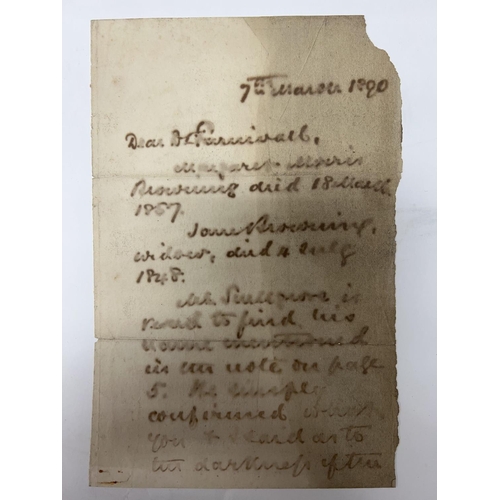 7th March 1890
Dear Dr Furnivall,
Margaret Morris
Browning died 18 March
1857.
Jane Browning,
widow, died 4 July
1848.
Mr. is
to find his
name mentioned
in note on page
5. He simply
confirmed what
you & I said as to
the darkness of the